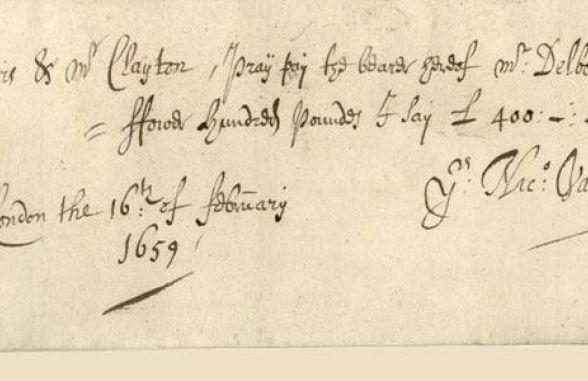 & Mr Clayton, Pray pay the bearer hereof Mr: Delbo
= ffower hundred Poundes I say £ 400: – :
London the 16th: of february
1659
Yrs: Nico: Va